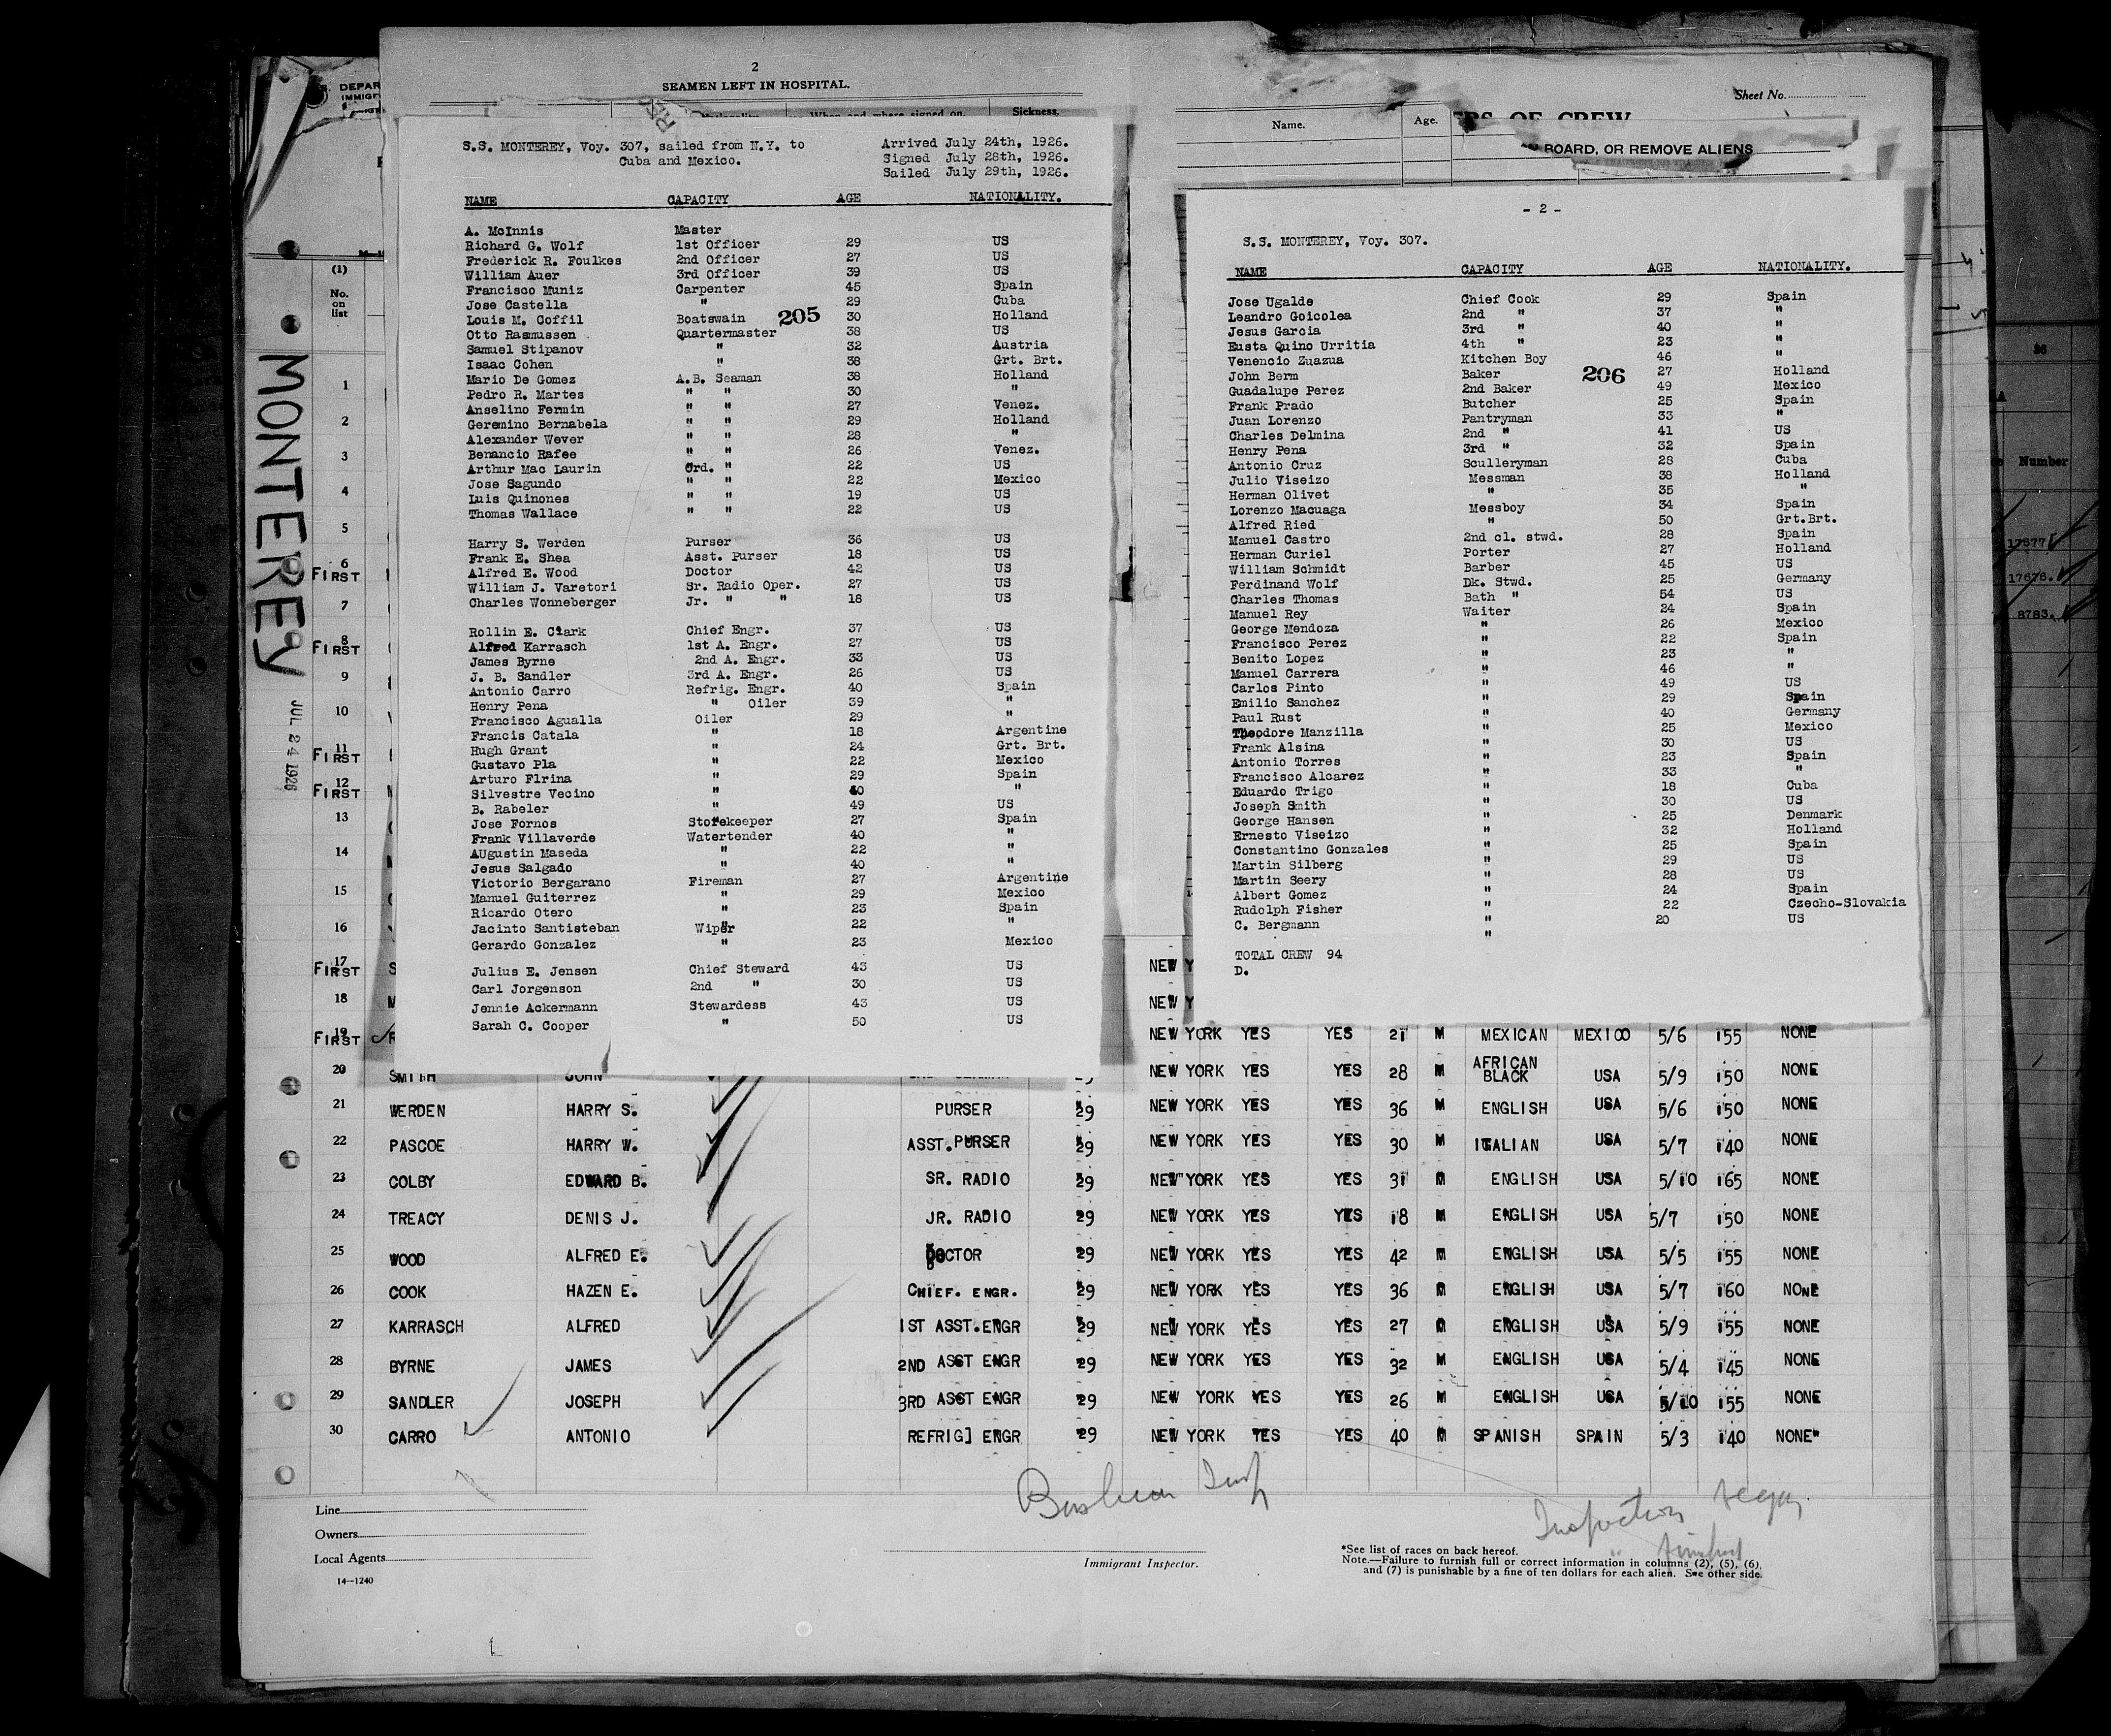 2
SEAMEN LEFT IN HOSPITAL.
Sheet No.
Name. Age.
OF CREW
BOARD, OR REMOVE ALIENS
S. DEPAR
IMMIGR
When and where signed on. Sickness.
S.S. MONTEREY, Voy. 307, sailed from N.Y. to Arrived July 24th, 1926.
Cuba and Mexico. Signed July 28th, 1926.
Sailed July 29th, 1926.
NAME CAPACITY AGE NATIONALITY.
A. McInnis Master
Richard G. Wolf 1st Officer 29 US
Frederick R. Foulkes 2nd Officer 27 US
William Auer 3rd Officer 39 US
Francisco Muniz Carpenter 45 Spain
Jose Castella " 29 Cuba
Louis M. Coffil Boatswain 205 30 Holland
Otto Rasmussen Quartermaster 38 US
Samuel Stipanov " 32 Austria
Isaac Cohen " 38 Grt. Brt.
Mario De Gomez A.B. Seaman 38 Holland
Pedro R. Martes " " 30 "
Anselino Fermin " " 27 Venez.
Geremino Bernabela " " 29 Holland
Alexander Wever " " 28 "
Benancio Rafee " " 26 Venez.
Arthur Mac Laurin Ord. " 22 US
Jose Sagundo " " 22 Mexico
Luis Quinones " " 19 US
Thomas Wallace " " 22 US
Harry S. Werden Purser 36 US
Frank E. Shea Asst. Purser 18 US
Alfred E. Wood Doctor 42 US
William J. Varetori Sr. Radio Oper. 27 US
Charles Wonneberger Jr. " " 18 US
Rollin E. Clark Chief Engr. 37 US
Alfred Karrasch 1st A. Engr. 27 US
James Byrne 2nd A. Engr. 33 US
J. B. Sandler 3rd A. Engr. 26 US
Antonio Carro Refrig. Engr. 40 Spain
Henry Pena " Oiler 39 "
Francisco Agualla Oiler 29 "
Francis Catala " 18 Argentine
Hugh Grant " 24 Grt. Brt.
Gustavo Pla " 22 Mexico
Arturo Flrina " 29 Spain
Silvestre Vecino " 40 "
B. Rabeler " 49 US
Jose Fornos Storekeeper 27 Spain
Frank Villaverde Watertender 40 "
AUgustin Maseda " 22 "
Jesus Salgado " 40 "
Victorio Bergarano Fireman 27 Argentine
Manuel Guiterrez " 29 Mexico
Ricardo Otero " 23 Spain
Jacinto Santisteban Wiper 22 "
Gerardo Gonzalez " 23 Mexico
Julius E. Jensen Chief Steward 43 US
Carl Jorgenson 2nd " 30 US
Jennie Ackermann Stewardess 43 US
Sarah C. Cooper " 50 US
- 2 -
S.S. MONTEREY, Voy. 307.
NAME CAPACITY AGE NATIONALITY.
Jose Ugalde Chief Cook 29 Spain
Leandro Goicolea 2nd " 37 "
Jesus Garcia 3rd " 40 "
Eusta Quino Urritia 4th " 23 "
Venencio Zuazua Kitchen Boy 46 "
John Berm Baker 206 27 Holland
Guadalupe Perez 2nd Baker 49 Mexico
Frank Prado Butcher 25 Spain
Juan Lorenzo Pantryman 33 "
Charles Delmina 2nd " 41 US
Henry Pena 3rd " 32 Spain
Antonio Cruz Sculleryman 28 Cuba
Julio Viseizo Messman 38 Holland
Herman Olivet " 35 "
Lorenzo Macuaga Messboy 34 Spain
Alfred Ried " 50 Grt.Brt.
Manuel Castro 2nd cl. stwd. 28 Spain
Herman Curiel Porter 27 Holland
William Schmidt Barber 45 US
Ferdinand Wolf Dk. Stwd. 25 Germany
Charles Thomas Bath " 54 US
Manuel Rey Waiter 24 Spain
George Mendoza " 26 Mexico
Francisco Perez " 22 Spain
Benito Lopez " 23 "
Manuel Carrera " 46 "
Carlos Pinto " 49 US
Emilio Sanchez " 29 Spain
Paul Rust " 40 Germany
Theodore Manzilla " 25 Mexico
Frank Alsina " 30 US
Antonio Torres " 23 Spain
Francisco Alcarez " 33 "
Eduardo Trigo " 18 Cuba
Joseph Smith " 30 US
George Hansen " 25 Denmark
Ernesto Viseizo " 32 Holland
Constantino Gonzales " 25 Spain
Martin Silberg " 29 US
Martin Seery " 28 US
Albert Gomez " 24 Spain
Rudolph Fisher " 22 Czecho-Slovakia
C. Bergmann " 20 US
"
TOTAL CREW 94
D.
MONTEREY
JUL 24 1926
(1)
No.
on
list
1
2
3
4
5
6
FIRST
7
8
FIRST
9
10
11
FIRST
12
FIRST
13
14
15
16
17
FIRST NEW Y
18 NEW Y
19
FIRST NEW YORK YES YES 21 M MEXICAN MEXICO 5/6 155 NONE
20 SMITH JOHN NEW YORK YES YES 28 M AFRICAN BLACK USA 5/9 150 NONE
21 WERDEN HARRY S. PURSER 29 NEW YORK YES YES 36 M ENGLISH USA 5/6 150 NONE
22 PASCOE HARRY W. ASST.PURSER 29 NEW YORK YES YES 30 M ITALIAN USA 5/7 140 NONE
23 COLBY EDWARD B. SR. RADIO 29 NEW YORK YES YES 31 M ENGLISH USA 5/10 165 NONE
24 TREACY DENIS J. JR. RADIO 29 NEW YORK YES YES 18 M ENGLISH USA 5/7 150 NONE
25 WOOD ALFRED E. DOCTOR 29 NEW YORK YES YES 42 M ENGLISH USA 5/5 155 NONE
26 COOK HAZEN E. CHIEF. ENGR. 29 NEW YORK YES YES 36 M ENGLISH USA 5/7 160 NONE
27 KARRASCH ALFRED 1ST ASST.ENGR 29 NEW YORK YES YES 27 M ENGLISH USA 5/9 155 NONE
28 BYRNE JAMES 2ND ASST ENGR 29 NEW YORK YES YES 32 M ENGLISH USA 5/4 145 NONE
29 SANDLER JOSEPH 3RD ASST ENGR 29 NEW YORK YES YES 26 M ENGLISH USA 5/10 155 NONE
30 CARRO ANTONIO REFRIG] ENGR 29 NEW YORK YES YES 40 M SPANISH SPAIN 5/3 140 NONE"
36
Number
17677
17678.
8783.
Line
Owners
Local Agents
14—1240
Immigrant Inspector.
Inspection
*See list of races on back hereof.
Note.—Failure to furnish full or correct information in columns (2), (5), (6),
and (7) is punishable by a fine of ten dollars for each alien. See other side.